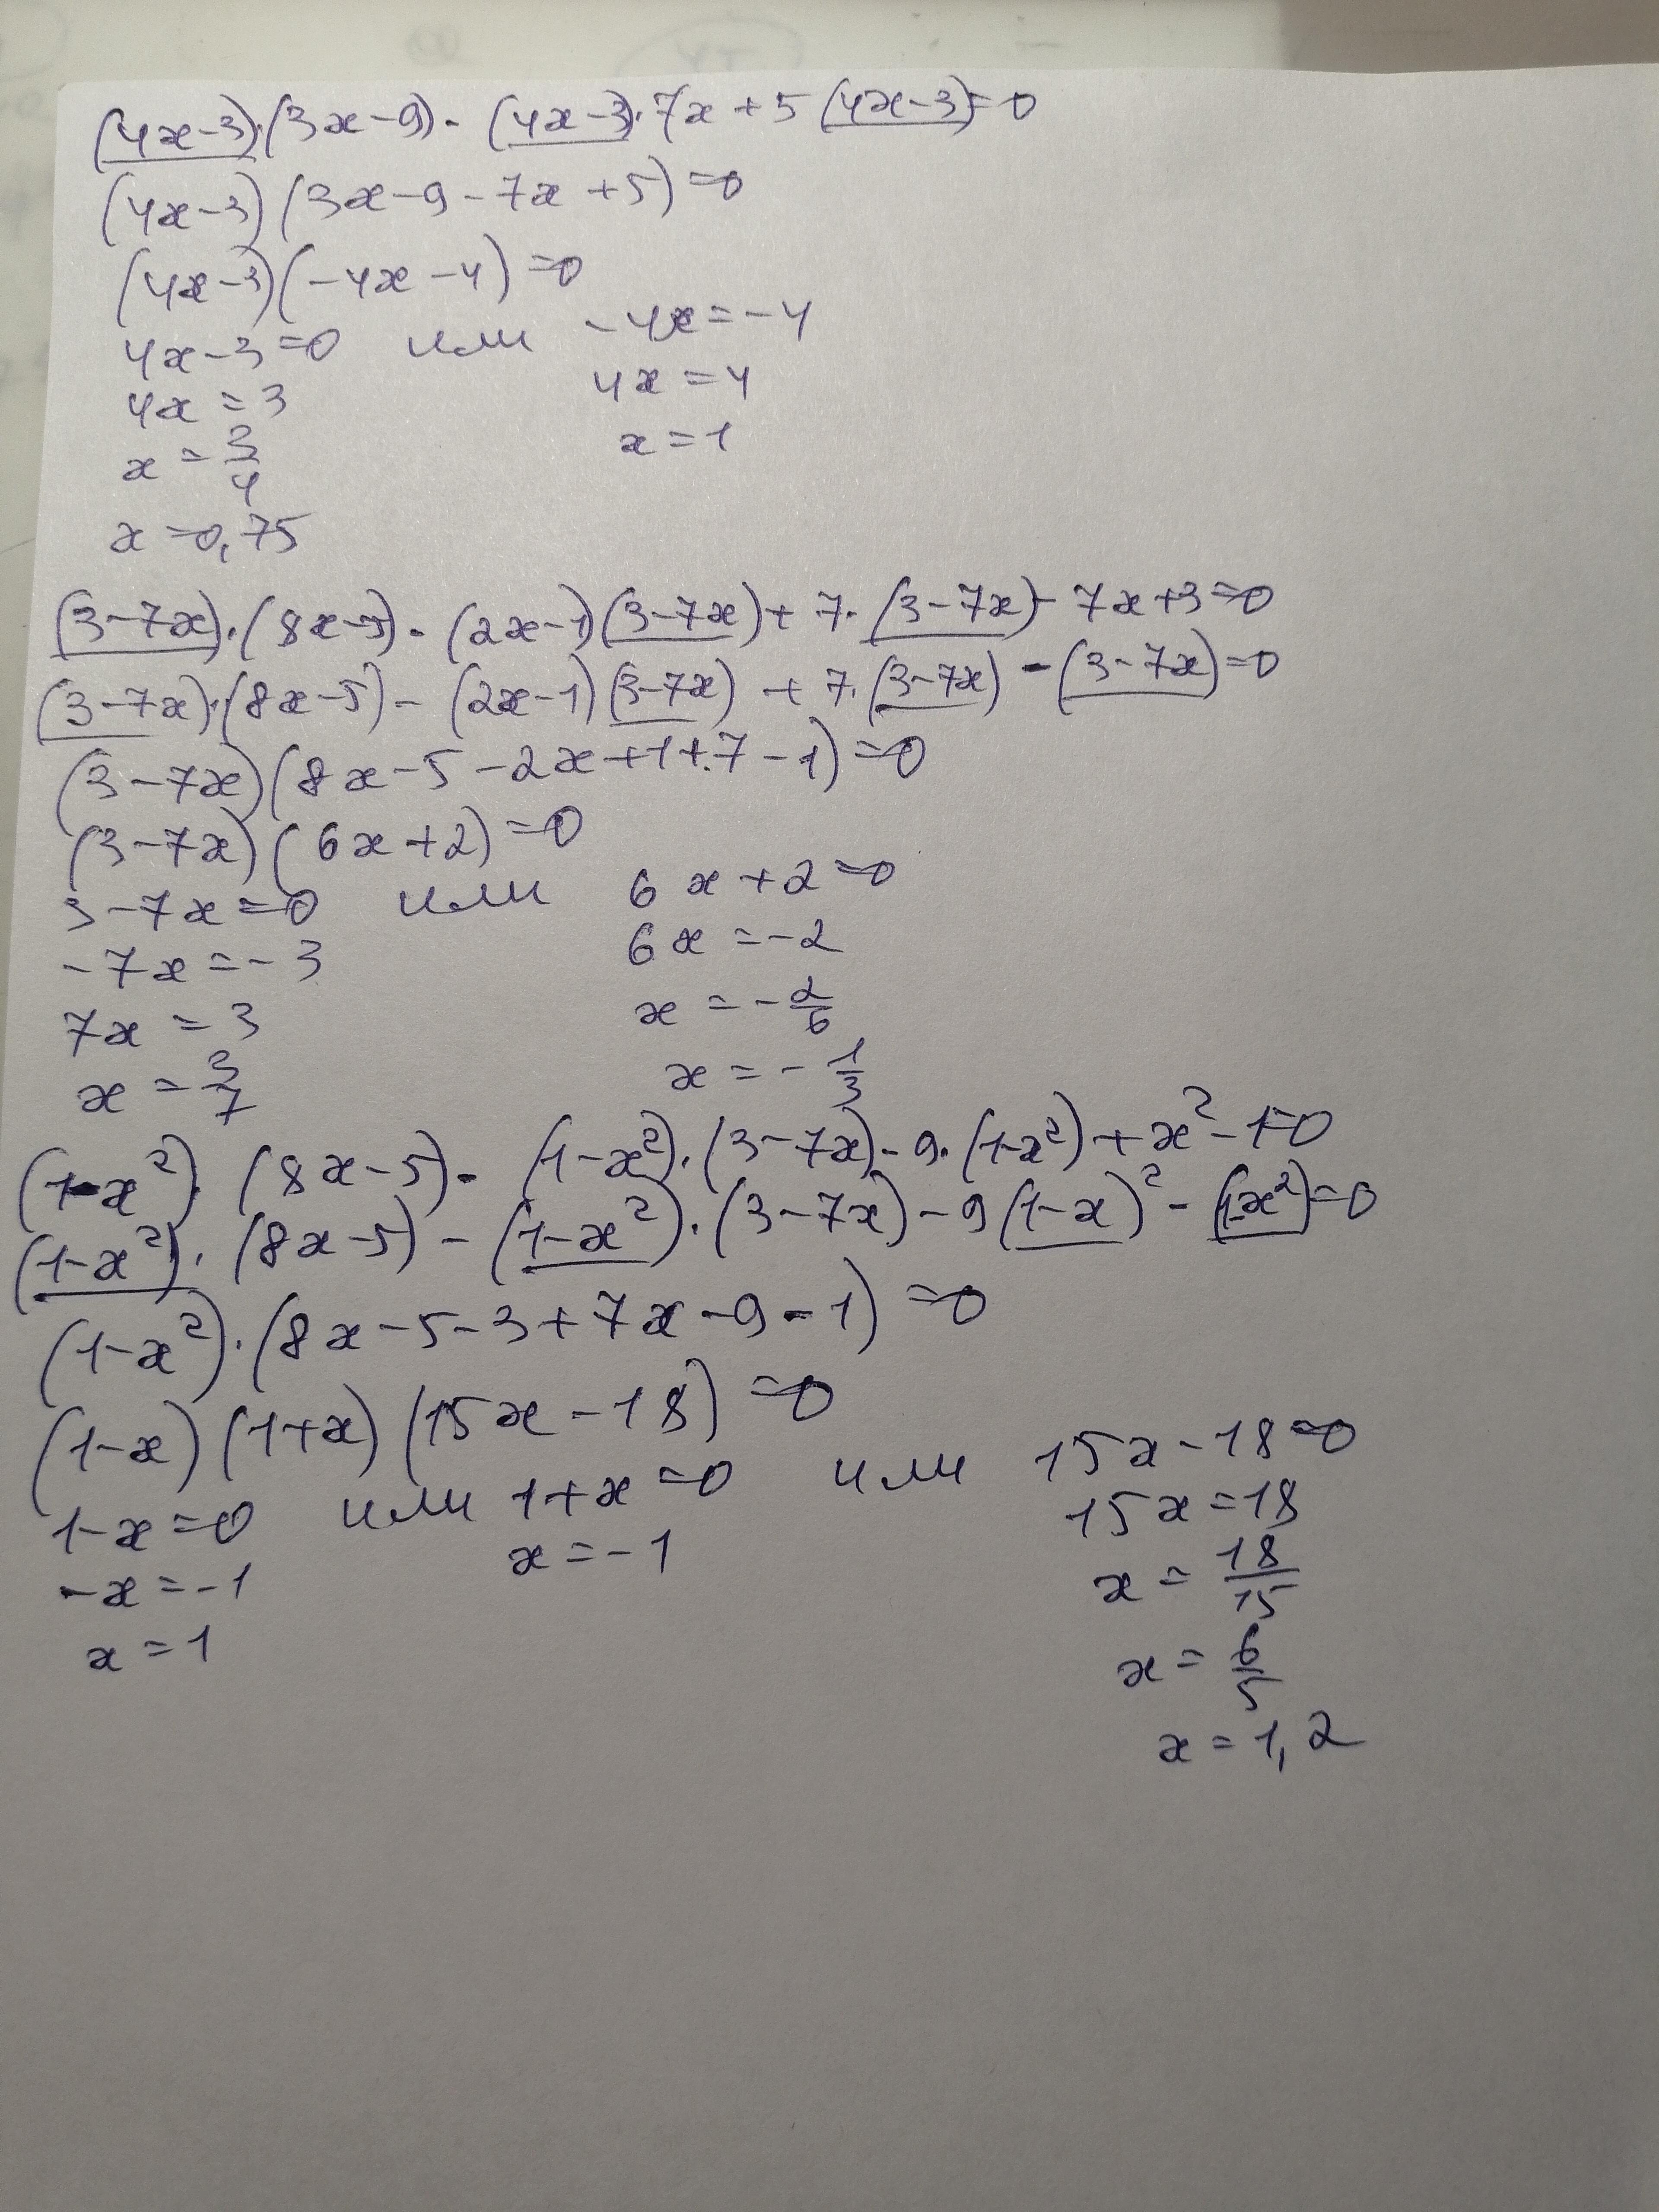 (4x-3)·(3x-9)-(4x-3)·7x+5(4x-3)=0
(4x-3)(3x-9-7x+5)=0
(4x-3)(-4x-4)=0
4x-3=0 или -4x=-4
4x=3 4x=4
x=3/4 x=1
x=0,75
(3-7x)·(8x-5)-(2x-1)(3-7x)+7·(3-7x)-7x+3=0
(3-7x)·(8x-5)-(2x-1)(3-7x)+7·(3-7x)-(3-7x)=0
(3-7x)(8x-5-2x+1+7-1)=0
(3-7x)(6x+2)=0
3-7x=0 или 6x+2=0
-7x=-3 6x=-2
7x=3 x=-2/6
x=3/7 x=-1/3
(1-x²)·(8x-5)-(1-x²)·(3-7x)-9·(1-x²)+x²-1=0
(1-x²)·(8x-5)-(1-x²)·(3-7x)-9(1-x)²-(1-x²)=0
(1-x²)·(8x-5-3+7x-9-1)=0
(1-x)(1+x)(15x-18)=0
1-x=0 или 1+x=0 или 15x-18=0
-x=-1 x=-1 15x=18
x=1 x=18/15
x=6/5
x=1,2